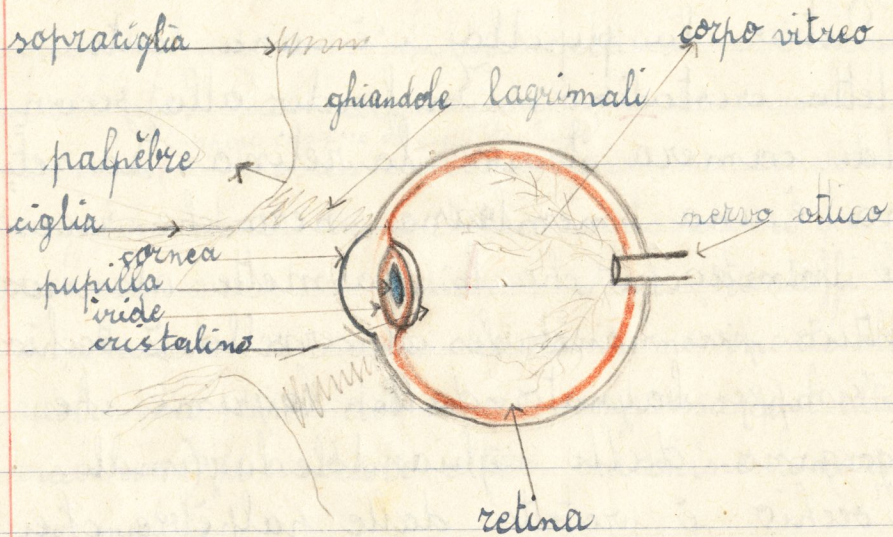 sopraciglia
corpo vitreo
ghiandole lagrimali
palpĕbre
ciglia
nervo ottico
cornea
pupilla
iride
cristalino
retina